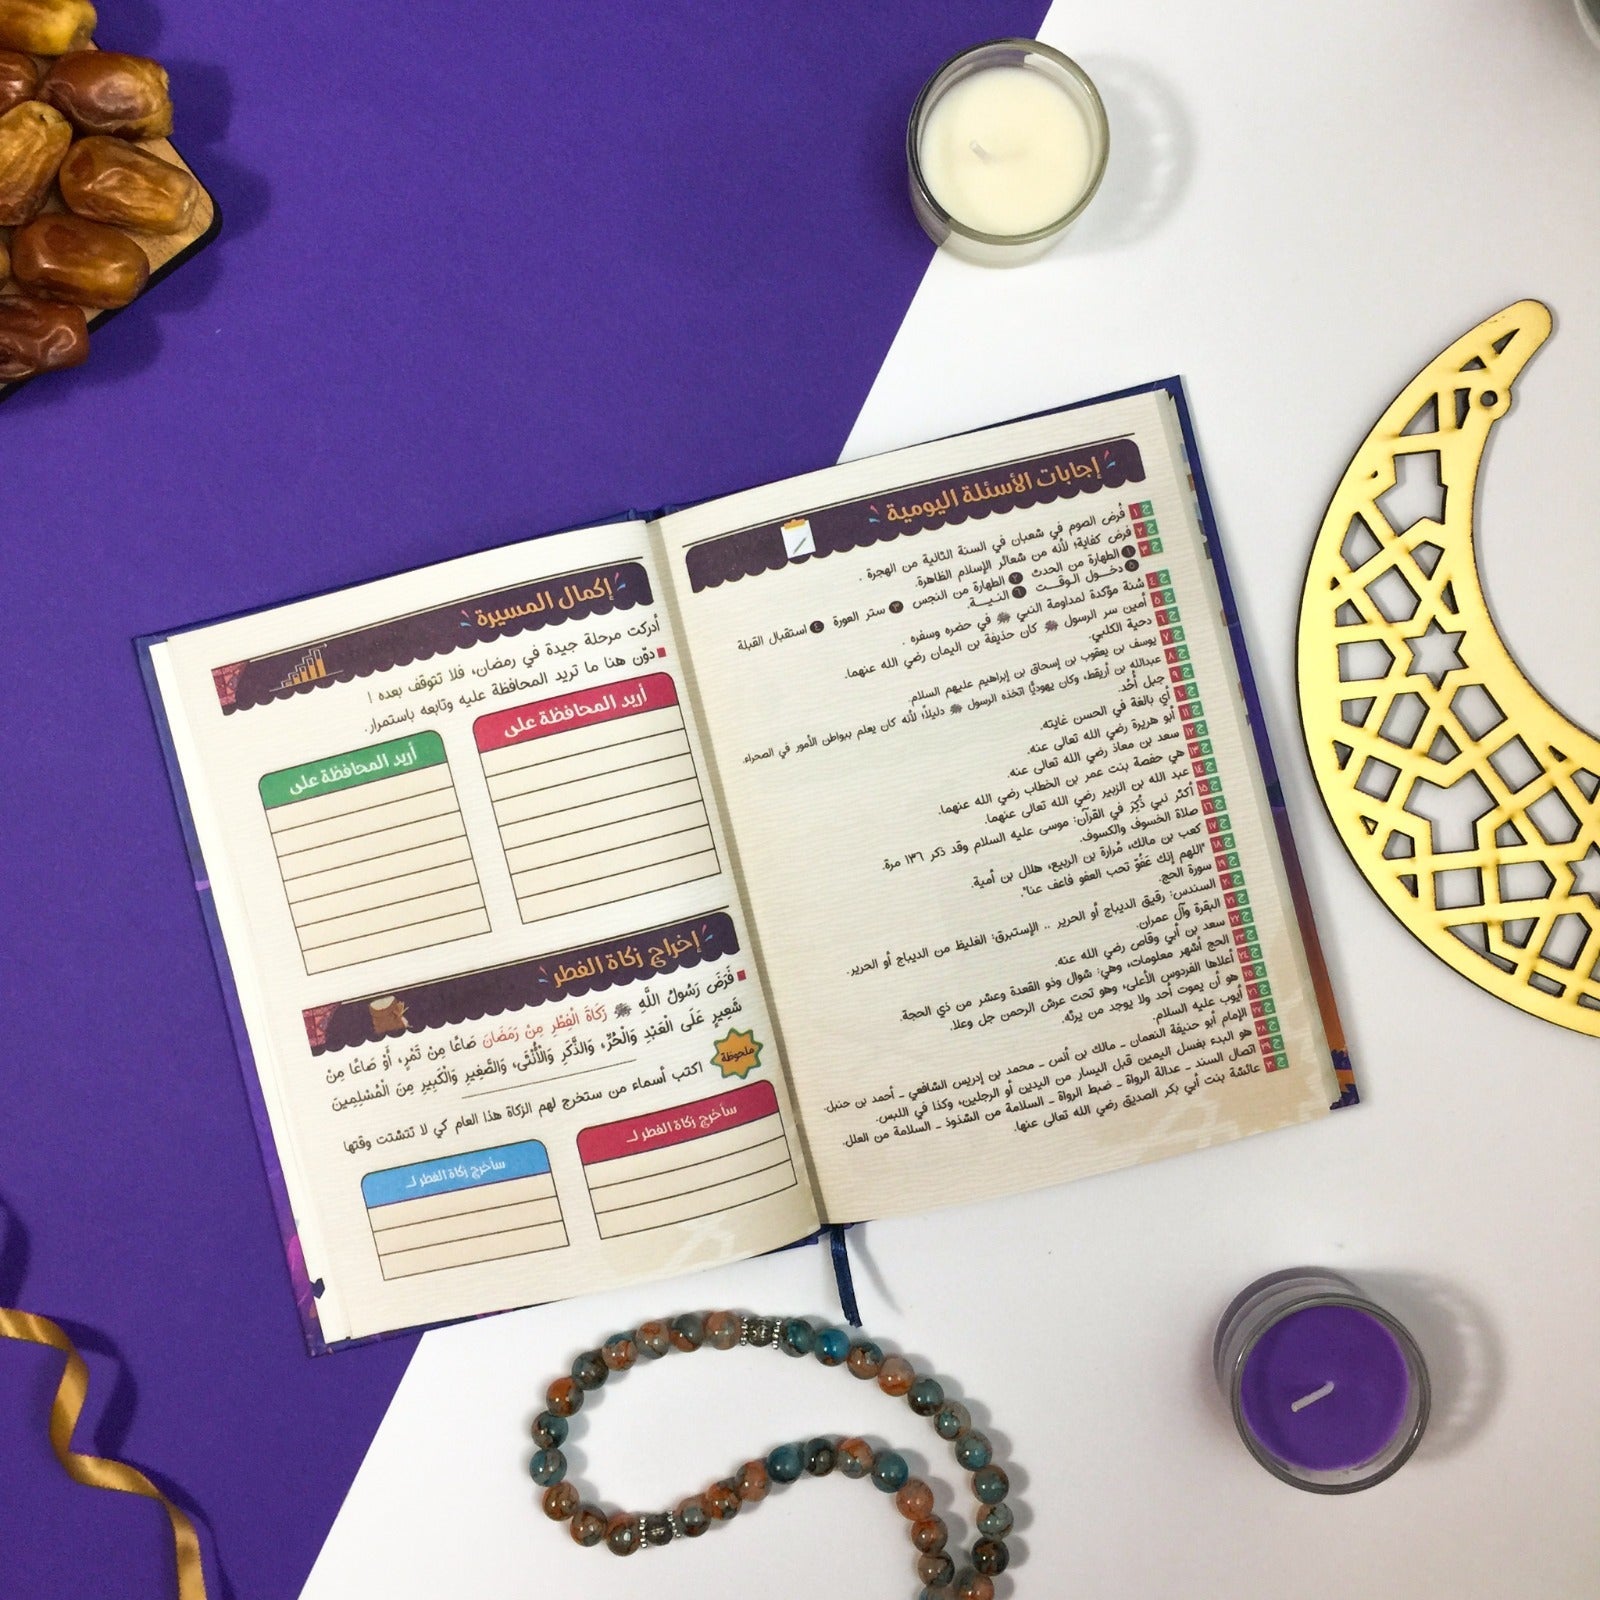 إجابات الأسئلة اليومية
ج ١ فُرض الصوم في شعبان في السنة الثانية من الهجرة .
ج ٢ فرض كفاية؛ لأنه من شعائر الإسلام الظاهرة.
ج ٣ ١ الطهارة من الحدث ٢ الطهارة من النجس ٣ ستر العورة ٤ استقبال القبلة
٥ دخـول الـوقـت ٦ النيـة.
ج ٤ سُنة مؤكدة لمداومة النبي ﷺ في حضره وسفره .
ج ٥ أمين سر الرسول ﷺ كان حذيفة بن اليمان رضي الله عنهما.
ج ٦ دحية الكلبي.
ج ٧ يوسف بن يعقوب بن إسحاق بن إبراهيم عليهم السلام.
ج ٨ عبدالله بن أريقط، وكان يهوديًّا اتخذه الرسول ﷺ دليلًا؛ لأنه كان يعلم ببواطن الأمور في الصحراء.
ج ٩ جبل أُحُد.
ج ١٠ أي بالغة في الحسن غايته.
ج ١١ أبو هريرة رضي الله تعالى عنه.
ج ١٢ سعد بن معاذ رضي الله تعالى عنه.
ج ١٣ هي حفصة بنت عمر بن الخطاب رضي الله عنهما.
ج ١٤ عبد الله بن الزبير رضي الله تعالى عنهما.
ج ١٥ أكثر نبي ذُكِرَ في القرآن: موسى عليه السلام وقد ذكر ١٣٦ مرة.
ج ١٦ صلاة الخسوف والكسوف.
ج ١٧ كعب بن مالك، مُرارة بن الربيع، هلال بن أمية.
ج ١٨ "اللهم إنك عَفُوّ تحب العفو فاعف عنا".
ج ١٩ سورة الحج.
ج ٢٠ السندس: رقيق الديباج أو الحرير .. الإستبرق: الغليظ من الديباج أو الحرير.
ج ٢١ البقرة وآل عمران.
ج ٢٢ سعد بن أبي وقاص رضي الله عنه.
ج ٢٣ الحج أشهر معلومات، وهي: شوال وذو القعدة وعشر من ذي الحجة.
ج ٢٤ أعلاها الفردوس الأعلى، وهو تحت عرش الرحمن جل وعلا.
ج ٢٥ هو أن يموت أحد ولا يوجد من يرثه.
ج ٢٦ أيوب عليه السلام.
ج ٢٧ الإمام أبو حنيفة النعمان ـ مالك بن أنس ـ محمد بن إدريس الشافعي ـ أحمد بن حنبل.
ج ٢٨ هو البدء بغسل اليمين قبل اليسار من اليدين أو الرجلين، وكذا في اللبس.
ج ٢٩ اتصال السند ـ عدالة الرواة ـ ضبط الرواة ـ السلامة من الشذوذ ـ السلامة من العلل.
ج ٣٠ عائشة بنت أبي بكر الصديق رضي الله تعالى عنها.
إكمال المسيرة
أدركت مرحلة جيدة في رمضان، فلا تتوقف بعده !
دوّن هنا ما تريد المحافظة عليه وتابعه باستمرار.
أريد المحافظة على
أريد المحافظة على
إخراج زكاة الفطر
فَرَضَ رَسُولُ اللَّهِ ﷺ زَكَاةَ الْفِطْرِ مِنْ رَمَضَانَ صَاعًا مِنْ تَمْرٍ، أَوْ صَاعًا مِنْ
شَعِيرٍ عَلَى الْعَبْدِ وَالْحُرِّ، وَالذَّكَرِ وَالْأُنْثَى، وَالصَّغِيرِ وَالْكَبِيرِ مِنَ الْمُسْلِمِينَ
ملحوظة
اكتب أسماء من ستخرج لهم الزكاة هذا العام كي لا تتشتت وقتها
سأخرج زكاة الفطر لـ
سأخرج زكاة الفطر لـ